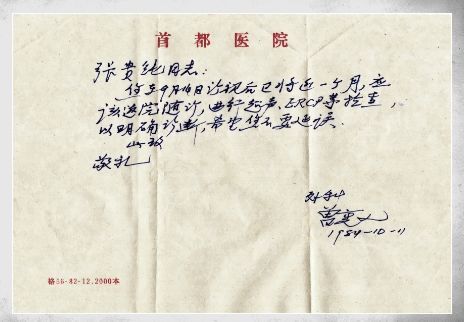 首都医院
张贵纯同志:
您自9月14日诊视后已将近一个月,应
该返院随诊,进行超声、ERCP等检查,
以明确诊断,希望您不要延误.
此致
敬礼
外科
1984-10-11
格56-82-12.2000本